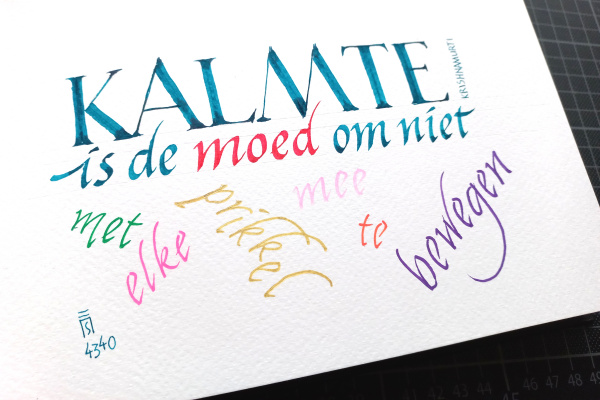 KALMTE
KRISHNAMURTI
is de moed om niet
met elke prikkel mee te bewegen
4340
44 45 46 47 48 49